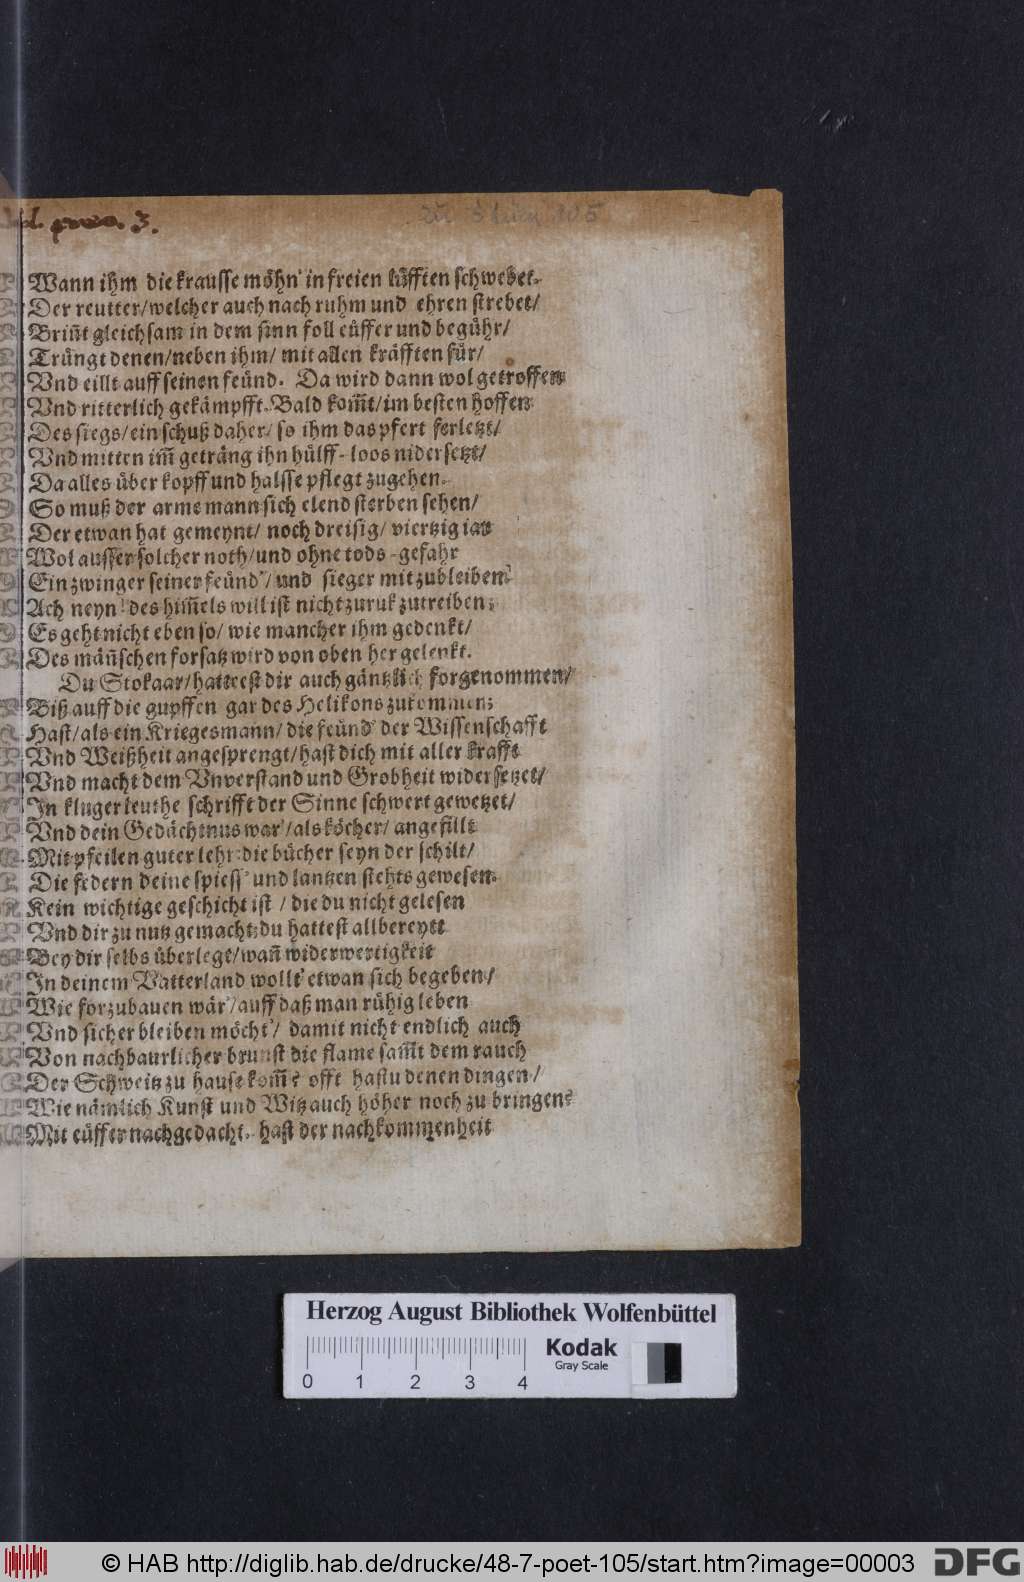 3.
zu Stück 105
Wann ihm die krausse möhn' in freien lüfften schwebet.
Der reutter/welcher auch nach ruhm und ehren strebet/
Briñt gleichsam in dem sinn foll eüffer und begühr/
Trüngt denen/neben ihm/ mit allen kräfften für/
Vnd eillt auff seinen feünd. Da wird dann wol getroffen
Vnd ritterlich gekämpfft. Bald kom̃t/im besten hoffen
Des siegs/ein schuß daher/ so ihm das pfert ferletzt/
Vnd mitten im̃ geträng ihn hülff-loos nidersetzt/
Da alles über kopff und halsse pflegt zugehen.
So muß der arme mann sich elend sterben sehen/
Der etwan hat gemeynt/ noch dreisig/ viertzig iar
Wol ausser solcher noth/und ohne tods-gefahr
Ein zwinger seiner feünd'/und sieger mitzubleiben?
Ach neyn! des him̃els will ist nicht zuruk zutreiben;
Es geht nicht eben so/ wie mancher ihm gedenkt/
Des mäñschen forsatz wird von oben her gelenkt.
Du Stokaar/hatteest dir auch gäntzlich forgenommen/
Biß auff die gupffen gar des Helikons zukommen;
Hast/als ein Kriegesmann/die feünd' der Wissenschafft
Vnd Weißheit angesprengt/hast dich mit aller krafft
Vnd macht dem Vnverstand und Grobheit widersetzet/
In kluger leuthe schrifft der Sinne schwert gewetzet/
Vnd dein Gedächtnus war'/als köcher/ angefillt
Mit pfeilen guter lehr: die bücher seyn der schilt/
Die federn deine spiess' und lantzen stehts gewesen.
Kein wichtige geschicht ist / die du nicht gelesen
Vnd dir zu nutz gemacht; du hattest allbereytt
Bey dir selbs überlegt/wañ widerwertigkeit
In deinem Vatterland wollt' etwan sich begeben/
Wie forzubauen wär'/auff daß man rühig leben
Vnd sicher bleiben möcht'/ damit nicht endlich auch
Von nachbaurlicher brunst die flame sam̃t dem rauch
Der Schweitz zu hause kom̃? offt hastu denen dingen/
Wie nämlich Kunst und Witz auch höher noch zu bringen?
Mit eüffer nachgedacht. hast der nachkommenheit
Herzog August Bibliothek Wolfenbüttel
0 1 2 3 4
Kodak
Gray Scale
© HAB http://diglib.hab.de/drucke/48-7-poet-105/start.htm?image=00003
DFG